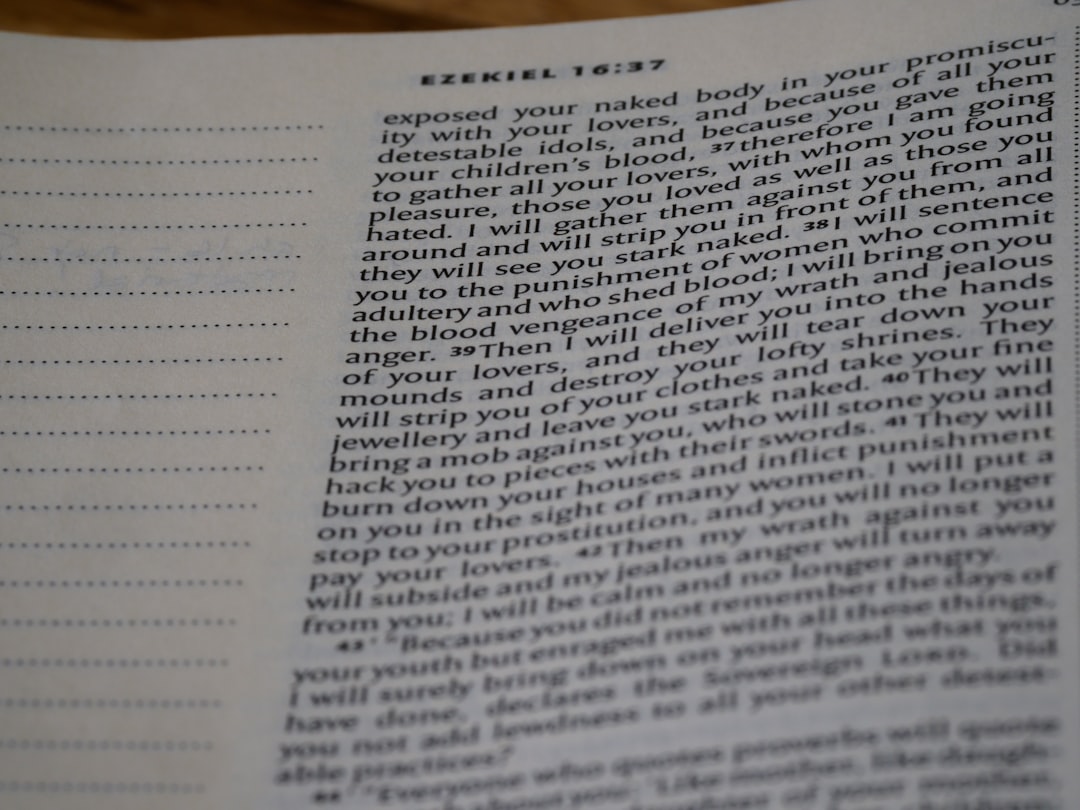 EZEKIEL 16:37
exposed your naked body in your promiscu-
ity with your lovers, and because of all your
detestable idols, and because you gave them
your children's blood, 37 therefore I am going
to gather all your lovers, with whom you found
pleasure, those you loved as well as those you
hated. I will gather them against you from all
around and will strip you in front of them, and
they will see you stark naked. 38 I will sentence
you to the punishment of women who commit
adultery and who shed blood; I will bring on you
the blood vengeance of my wrath and jealous
anger. 39 Then I will deliver you into the hands
of your lovers, and they will tear down your
mounds and destroy your lofty shrines. They
will strip you of your clothes and take your fine
jewellery and leave you stark naked. 40 They will
bring a mob against you, who will stone you and
hack you to pieces with their swords. 41 They will
burn down your houses and inflict punishment
on you in the sight of many women. I will put a
stop to your prostitution, and you will no longer
pay your lovers. 42 Then my wrath against you
will subside and my jealous anger will turn away
from you; I will be calm and no longer angry.
43 "Because you did not remember the days of
your youth but enraged me with all these things,
I will surely bring down on your head what you
have done, declares the Sovereign LORD. Did
you not add lewdness to all your other detest-
able practices?
44 "Everyone who quotes proverbs will quote
about you: 'Like mother, like daugh-
of your mother,